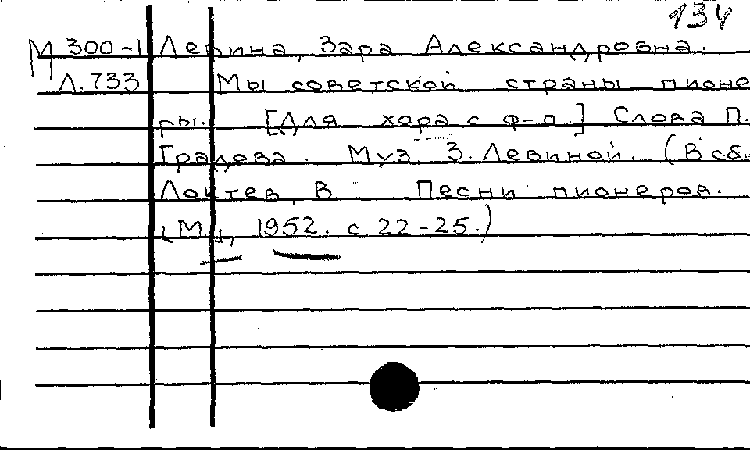 134
М 300-1 Левина, Зара Александровна.
Л.733 Мы советской страны пионе
ры. [Для хора с ф-п.] Слова П.
Градова. Муз. З. Левиной. (В сб.
Локтев, В Песни пионеров.
(М., 1952. с 22-25.)